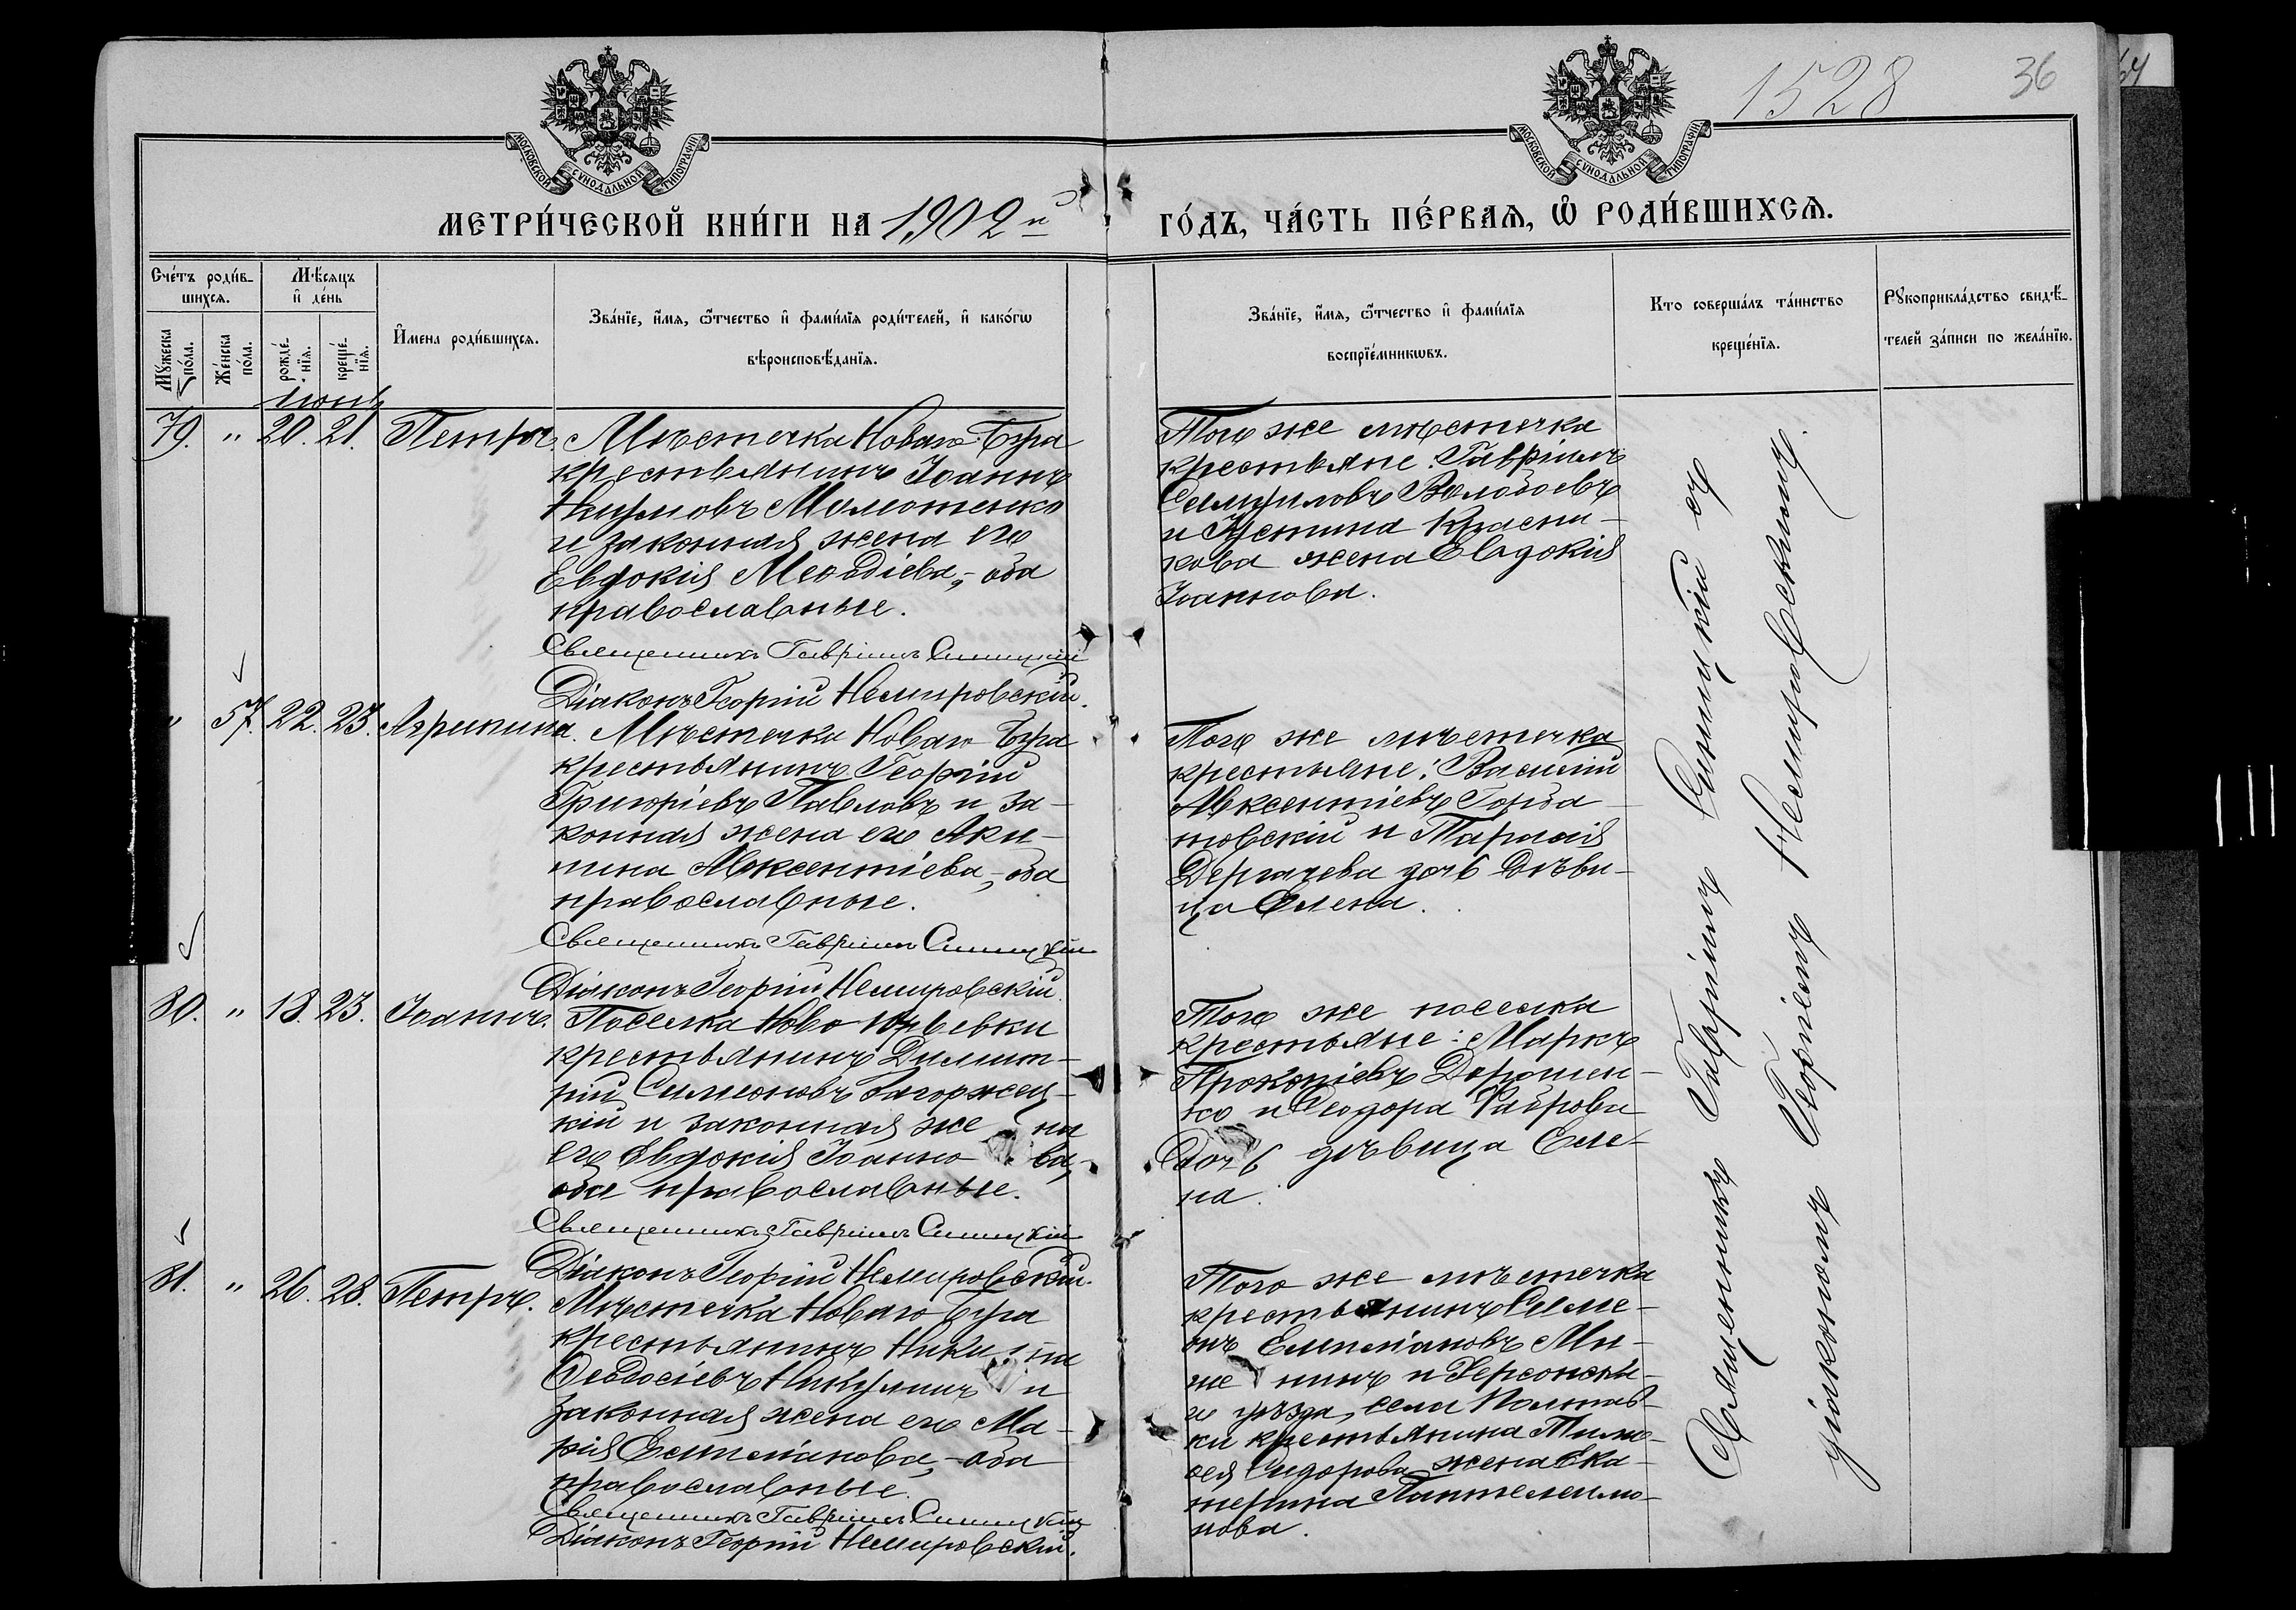 1528
36
МОСКОВСКОЙ СѴНОДАЛЬНОЙ ТИПОГРАФІИ
МОСКОВСКОЙ СѴНОДАЛЬНОЙ ТИПОГРАФІИ
МЕТРИ́ЧЕСКОЙ КНИ́ГИ НА 1902 й
ГО́ДЪ, ЧА́СТЬ ПЕ́РВАѦ, Ѽ РОДИ́ВШИХСѦ.
Сче́тъ роди́в-
шихсѧ.
Мѣ́сѧцъ
и҆ де́нь
Мꙋ́жеска по́ла.
Же́нска по́ла.
рожде́-нїѧ.
креще́-нїѧ.
И҆мена роди́вшихсѧ.
Зва́нїе, и҆́мѧ, ѻ҆́тчество и҆ фами́лїѧ роди́телей, и҆ како́гѡ
вѣроисповѣ́данїѧ.
Зва́нїе, и҆́мѧ, ѻ҆́тчество и҆ фами́лїѧ
воспрїе́мникѡвъ.
Кто соверша́лъ та́инство
креще́нїѧ.
Рꙋкоприкла́дство свидѣ́-
телей за́писи по жела́нїю.
Іюнь
79. " 20. 21. Петръ.
Мѣстечка Новаго Буга
крестьянинъ Іоаннъ
Кирилловъ
и законная жена его
Евдокія Меѳодіева, - оба
православные.
Священникъ Гавріилъ Синицкій
Діаконъ Георгій Немировскій.
Того же мѣстечка
крестьяне: Гавріилъ
Волобоевъ
и Устина Красни-
кова жена Евдокія
Іоаннова.
" 57. 22. 23. Агрипина.
Мѣстечка Новаго Буга
крестьянинъ Георгій
Григоріевъ Павловъ и за-
конная жена его Аки-
лина Авксентіева, - оба
православные.
Священникъ Гавріилъ Синицкій
Діаконъ Георгій Немировскій.
Того же мѣстечка
крестьяне: Василій
Авксентіевъ Горба-
новскій и Тарасія
Дергачева дочь дѣви-
ца Елена.
80. " 18. 23. Іоаннъ.
Поселка Ново-Юрьевки
крестьянинъ Димит-
рій Симеоновъ Загоржец-
кій и законная жена
его Евдокія Іоаннова,
оба православные.
Священникъ Гавріилъ Синицкій
Діаконъ Георгій Немировскій.
Того же поселка
крестьяне: Маркъ
Прокопіевъ Дорошен-
ко и Ѳеодора
дочь дѣвица Еле-
на.
81. " 26. 28. Петръ.
Мѣстечка Новаго Буга
крестьянинъ Никита
Ѳеодосіевъ Никулинъ и
законная жена его Ма-
рія Емиліанова, - оба
православные.
Священникъ Гавріилъ Синицкій
Діаконъ Георгій Немировскій.
Того же мѣстечка
крестьянинъ Симе-
онъ Емиліановъ Ми-
нинъ и Херсонска-
го уѣзда, села Полтав-
ки крестьянина Тимо-
ѳея Сидорова жена Ека-
терина Пантелеимо-
нова.
Священникъ Гавріилъ Синицкій съ
діакономъ Георгіемъ Немировскимъ.